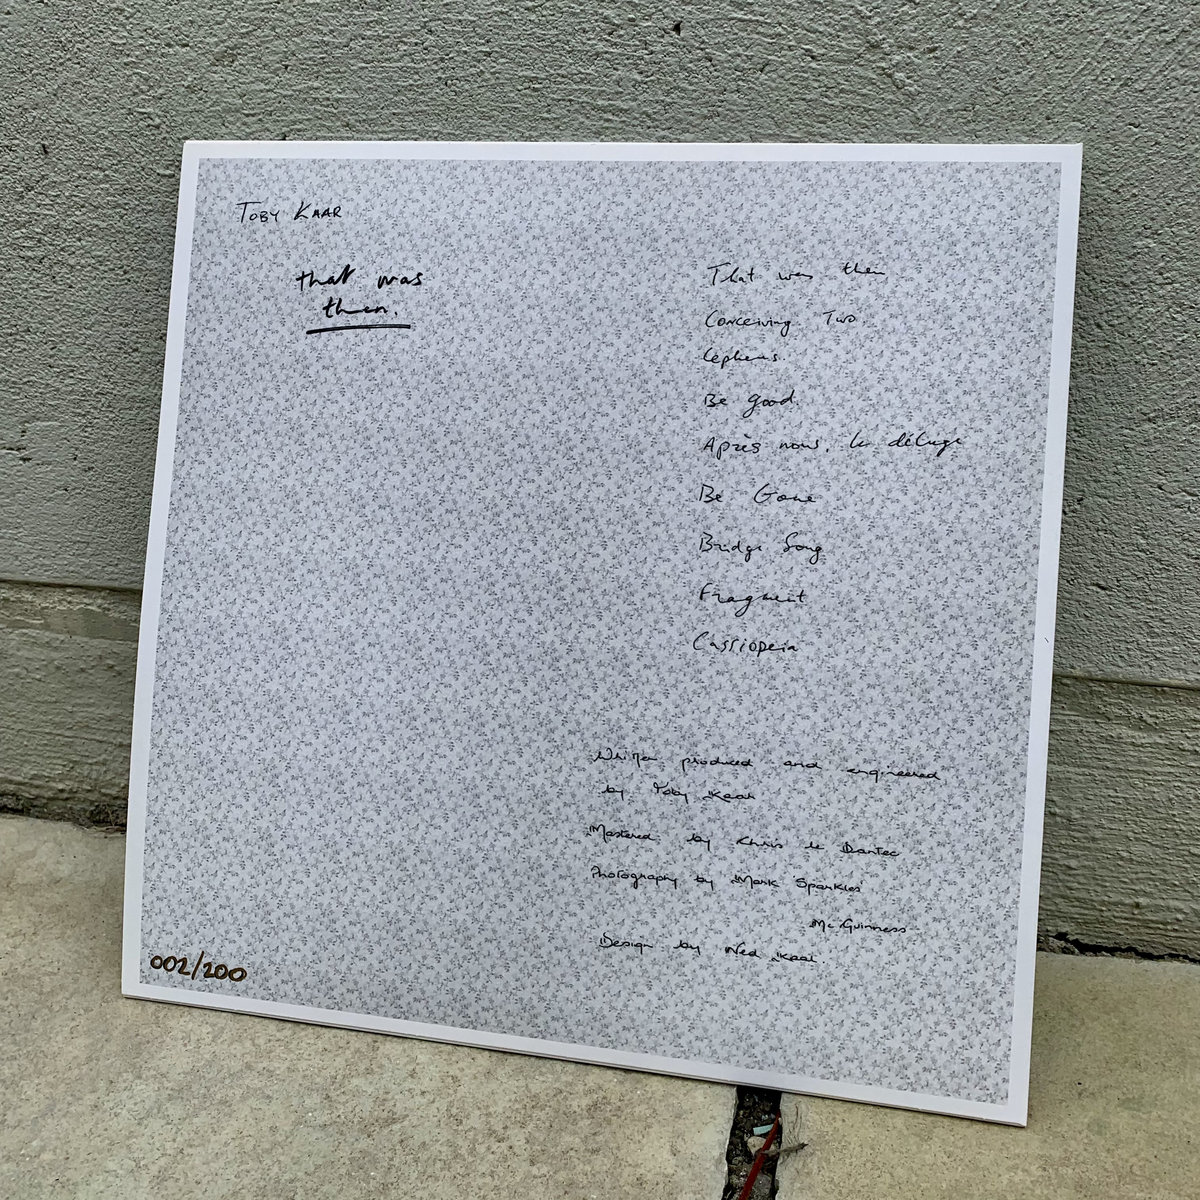 TOBY KAAR
that was
then.
That was then
Conceiving Two
Cepheus.
Be good.
Après nous, le déluge
Be Gone
Bridge Song
Fragment
Cassiopeia
Written produced and engineered
by Toby Kaar
Mastered by Chris le Dantec
Photography by Mark Sparkles
McGuinness
Design by Ned Kaar
002/200